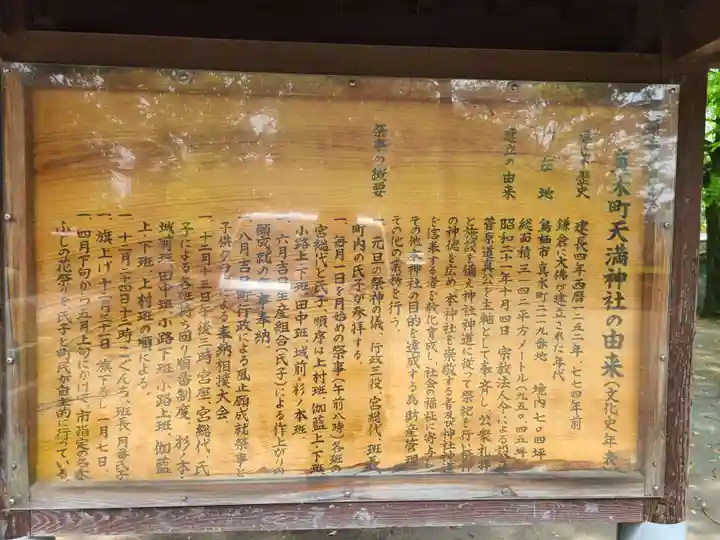 真木町天満神社の由来(文化史年表
歴史 建長四年西暦一二五二年、七七四年前
鎌倉に大佛が建立された年代
在地 鳥栖市真木町二二九番地 境内七〇四坪
総面積三一四二平方メートル(九五〇・四五坪
建立の由来 昭和二一年十月四日 宗教法人令による設
菅原道真公を主軸として奉斉し、公衆礼拝
と施設を備え神社神道に従って祭祀を行い祭神
の神徳を広め、本神社を崇敬する者及び神社神道
を信奉する者を教化育成し社会の福祉に寄与し
その他本神社の目的を達成する為財産管理
その他の業務を行う。
祭事の概要
一、元旦の祭神の儀、行政三役、宮総代、班長
町内の氏子が参拝する。
一、毎月一日を月始めの祭事(午前八時)各班の
宮総代と氏子、順序は上村班、伽藍上・下班
小路上・下班、田中班、城前・杉ノ本班、
一、六月吉日生産組合(氏子)による作上がりの
願成就の奉納
一、八月吉日町行政による風止願成就祭事と
子供クラブによる奉納相撲大会
一、十二月十三日午後三時、宮座、宮総代、氏
子による各班持ち回り順番制度、杉ノ本・
城前班、田中班、小路下班、小路上班、伽藍
上・下班、上村班の順による。
一、十二月二十四日十二時、くんち、班長、月番氏子
一、旗上げ十二月三十一日 旗下ろし一月七日、
一、四月下旬から五月上旬にかけて市指定の名木
ふじの花祭りを氏子と町民が自主的に行っている